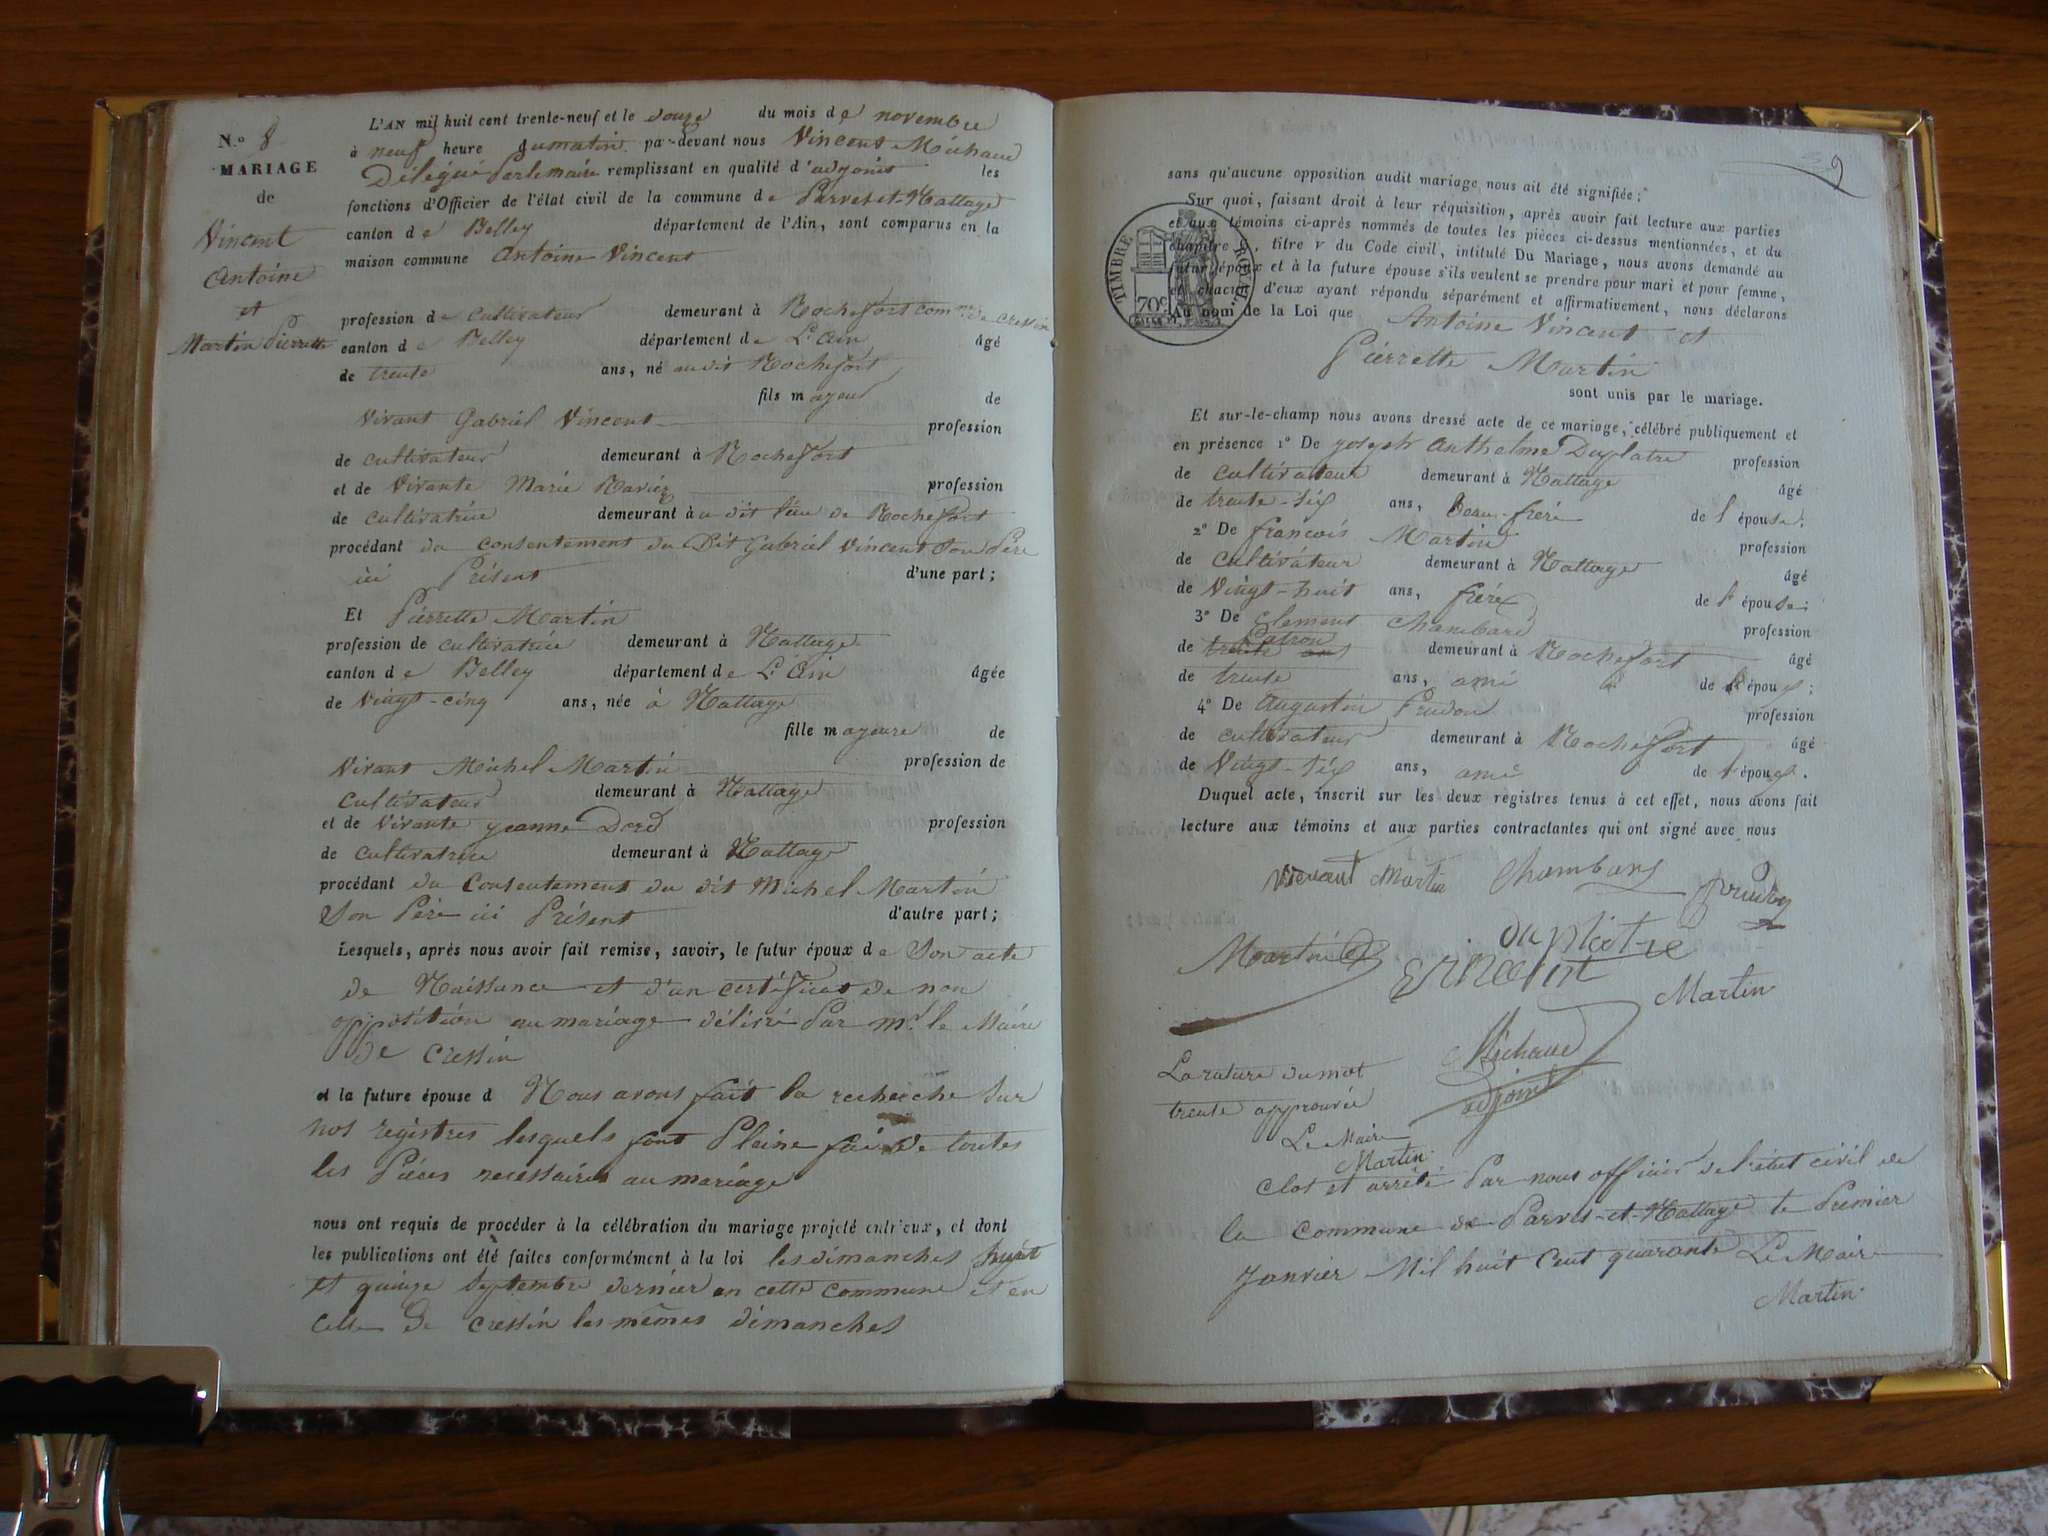 N.o 8
MARIAGE
de
Vincent
Antoine
et
Martin Pierrette
L'AN mil huit cent trente-neuf et le douze du mois de novembre
à neuf heure du matin par-devant nous Vincent Michaud
Délégué Par le maire remplissant en qualité d'adjoint les
fonctions d'Officier de l'état civil de la commune de Parves-et-Nattage
canton de Belley département de l'Ain, sont comparus en la
maison commune Antoine Vincent
profession de cultivateur demeurant à Rochefort com.ne de Cressin
canton de Belley département de L'Ain âgé
de trente ans, né au dit Rochefort
fils mayeur de
Vivant Gabriel Vincent profession
de cultivateur demeurant à Rochefort
et de Vivante Marie profession
de cultivatrice demeurant àu dit lieu de Rochefort
procédant du consentement du Dit Gabriel Vincent Son Père
ici Présent d'une part;
Et Pierrette Martin
profession de cultivatrice demeurant à Nattage
canton de Belley département de L'Ain âgée
de Vingt-cinq ans, née à Nattage
fille mayeure de
Vivant Michel Martin profession de
cultivateur demeurant à Nattage
et de Vivante jeanne Dord profession
de cultivatrice demeurant à Nattage
procédant du Consentement du dit Michel Martin
Son Père ici Présent d'autre part;
Lesquels, après nous avoir fait remise, savoir, le futur époux de Son acte
de Naissance et d'un certificat de non
opposition au mariage délivré Par mr. le Maire
de Cressin
et la future épouse d Nous avons fait la recherche Sur
nos registres lesquels font Pleine foi de toutes
les Pièces necessaires au mariage
nous ont requis de procéder à la célébration du mariage projeté entr'eux, et dont
les publications ont été faites conformément à la loi les dimanches huit
et quinze Septembre dernier en cette commune et en
celle de Cressin les mêmes dimanches
9
sans qu'aucune opposition audit mariage nous ait été signifiée;
Sur quoi, faisant droit à leur réquisition, après avoir fait lecture aux parties
et aux témoins ci-après nommés de toutes les pièces ci-dessus mentionnées, et du
chapitre titre V du Code civil, intitulé Du Mariage, nous avons demandé au
futur époux et à la future épouse s'ils veulent se prendre pour mari et pour femme,
et chacun d'eux ayant répondu séparément et affirmativement, nous déclarons
Au nom de la Loi que Antoine Vincent et
Pierrette Martin
sont unis par le mariage.
TIMBRE ROYAL.
70c
Et sur-le-champ nous avons dressé acte de ce mariage, célébré publiquement et
en présence 1° De joseph anthelme Duplatre profession
de cultivateur demeurant à Nattage âgé
de trente-six ans, beau-frère de l'épouse;
2° De françois Martin profession
de cultivateur demeurant à Nattage âgé
de Vingt-huit ans, frère de l'épouse;
3° De Clement Chambard profession
de trente ans Patron demeurant à Rochefort âgé
de trente ans, ami de l'époux;
4° De Augustin Prudon profession
de cultivateur demeurant à Rochefort âgé
de Vingt-six ans, ami de l'époux.
Duquel acte, inscrit sur les deux registres tenus à cet effet, nous avons fait
lecture aux témoins et aux parties contractantes qui ont signé avec nous
Martin Chambard prudon
Martin duplatre
Martin
Michaud
adjoint
La rature du mot
trente approuvée
Le Maire
Martin
Clos et arrêté Par nous officier de l'état civil de
la Commune de Parves-et-Nattage le Premier
Janvier Mil huit Cent quarante Le Maire
Martin